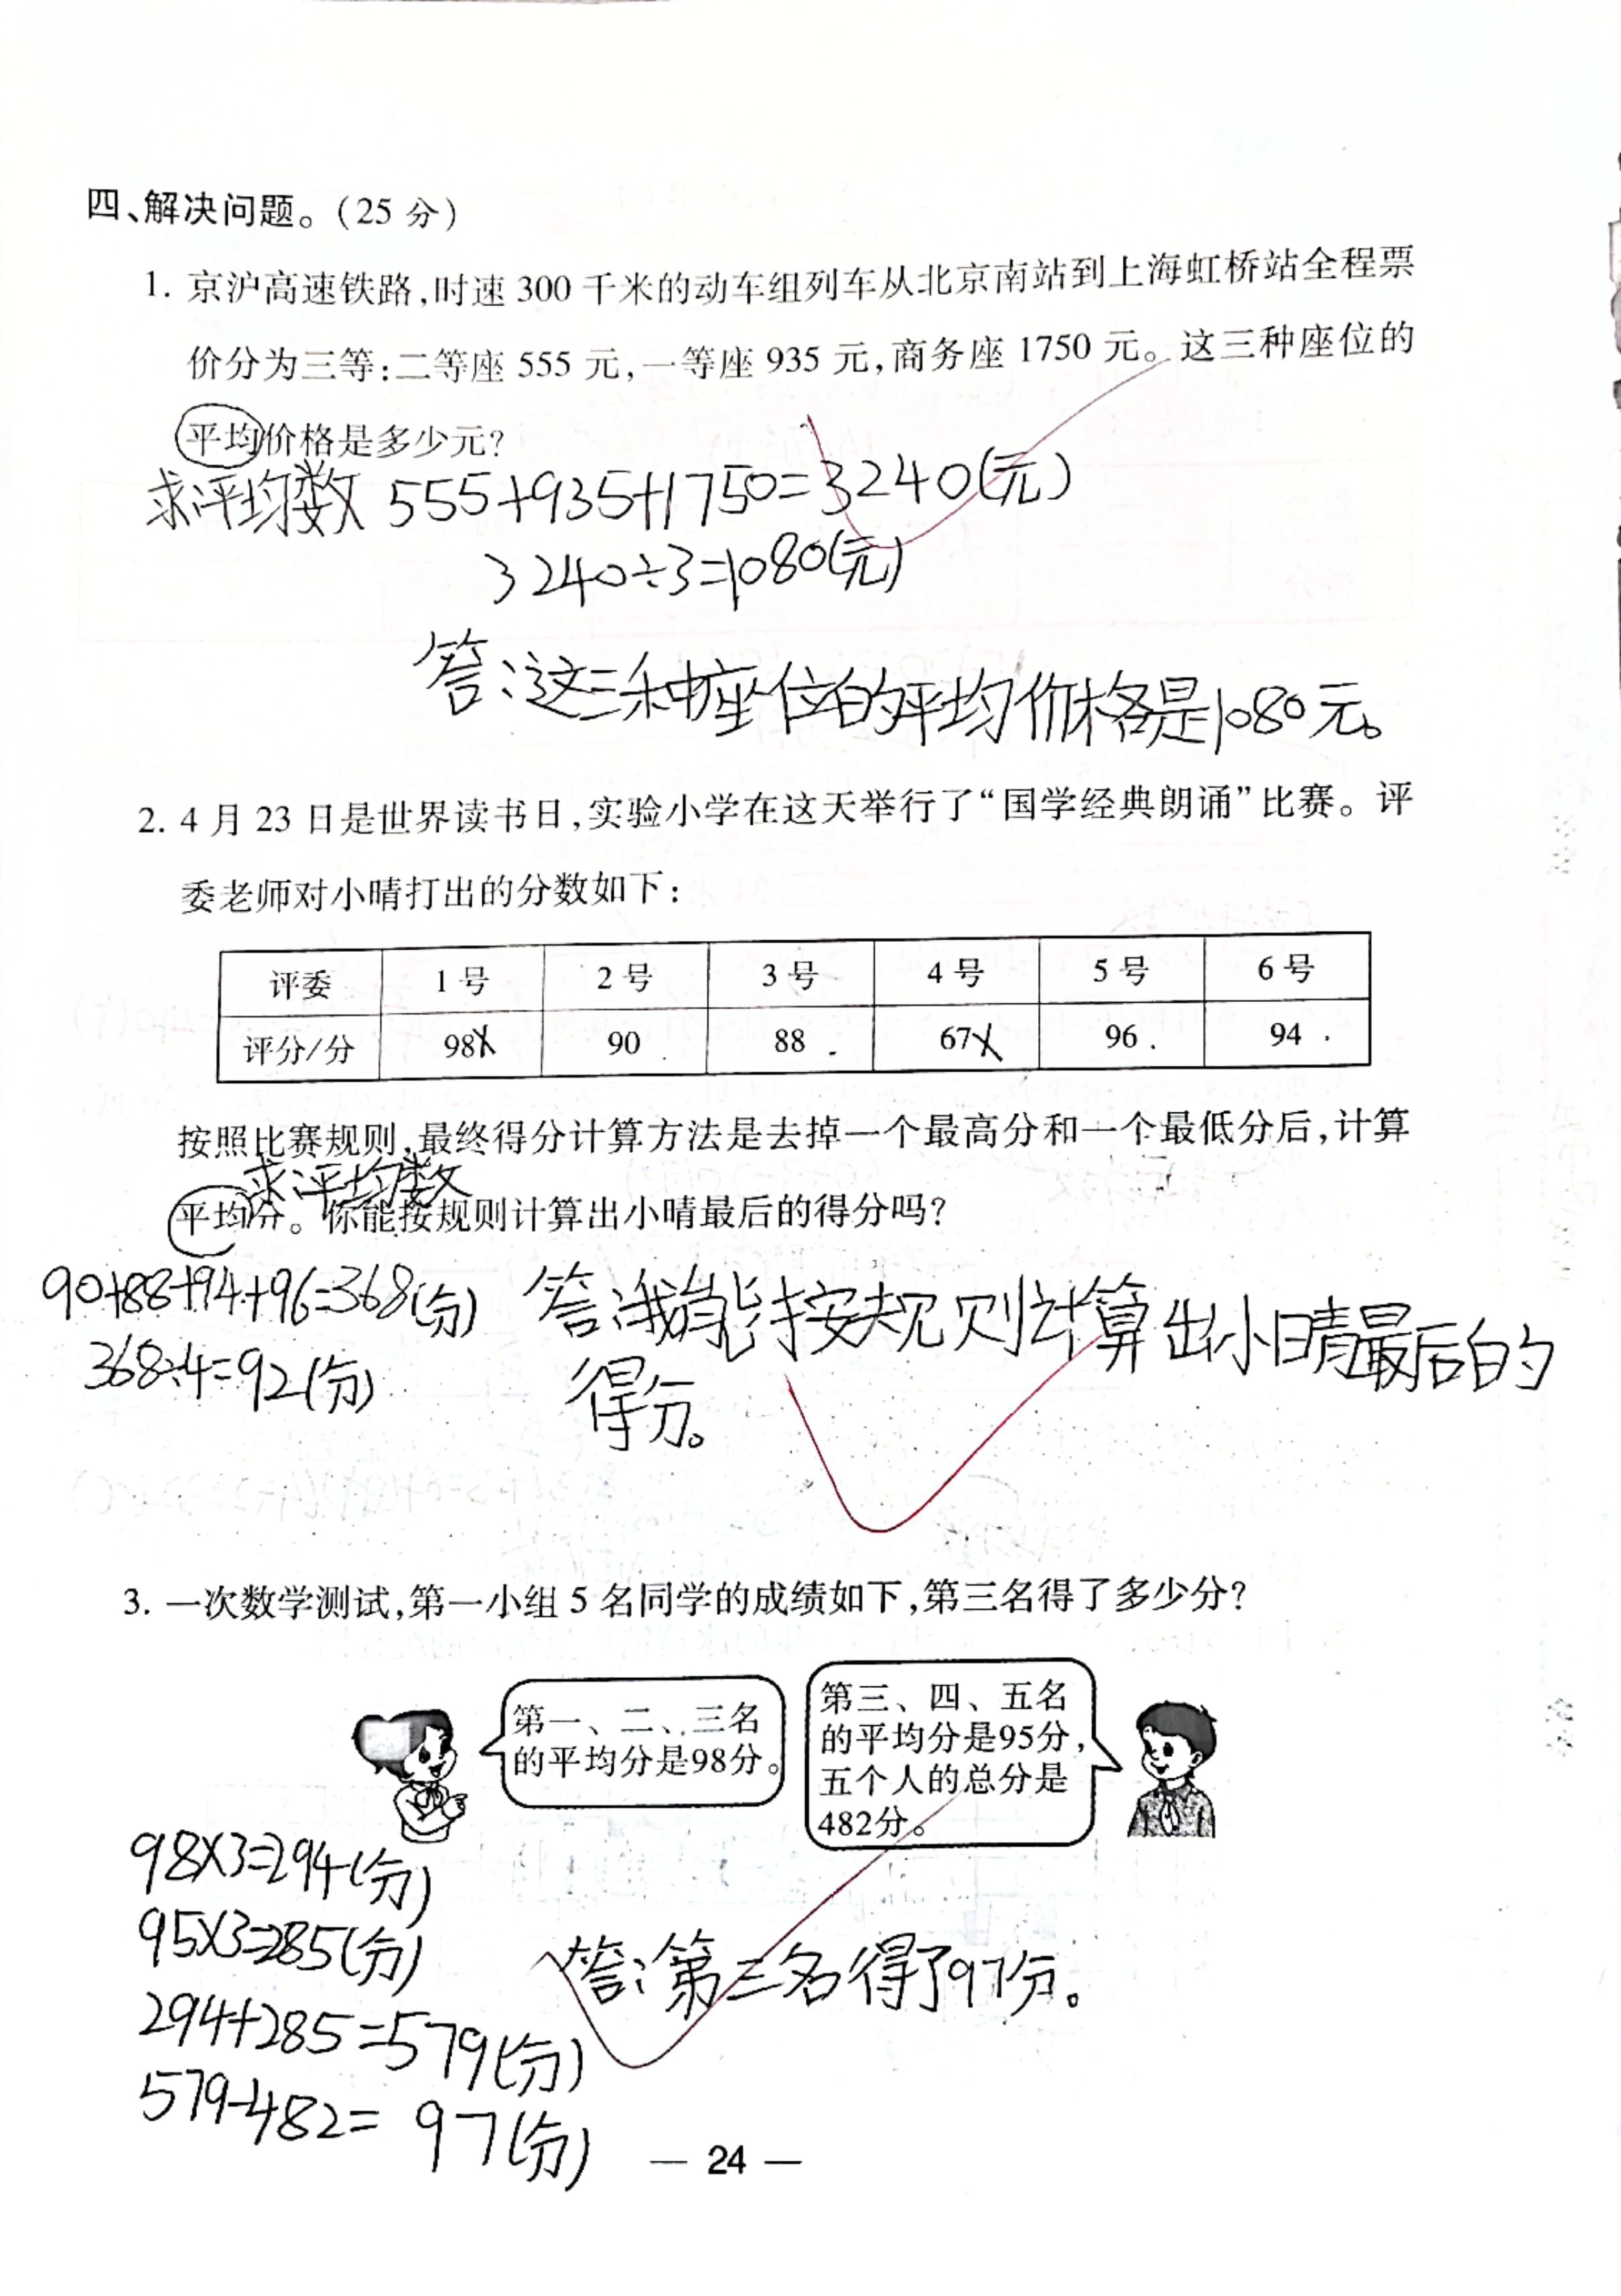 四、解决问题。(25 分)
1. 京沪高速铁路,时速 300 千米的动车组列车从北京南站到上海虹桥站全程票
价分为三等:二等座 555 元,一等座 935 元,商务座 1750 元。这三种座位的
平均价格是多少元?
求平均数 555+935+1750=3240(元)
3240÷3=1080(元)
答:这三种座位的平均价格是1080元。
2. 4 月 23 日是世界读书日,实验小学在这天举行了“国学经典朗诵”比赛。评
委老师对小晴打出的分数如下:
评委 1 号 2 号 3 号 4 号 5 号 6 号
评分/分 98 90 88 67 96 94
按照比赛规则,最终得分计算方法是去掉一个最高分和一个最低分后,计算
求平均数
平均分。你能按规则计算出小晴最后的得分吗?
90+88+94+96=368(分)
368÷4=92(分)
答:我能按规则计算出小晴最后的
得分。
3. 一次数学测试,第一小组 5 名同学的成绩如下,第三名得了多少分?
第一、二、三名
的平均分是98分。
第三、四、五名
的平均分是95分,
五个人的总分是
482分。
98×3=294(分)
95×3=285(分)
294+285=579(分)
579-482= 97(分)
答:第三名得了97分。
— 24 —